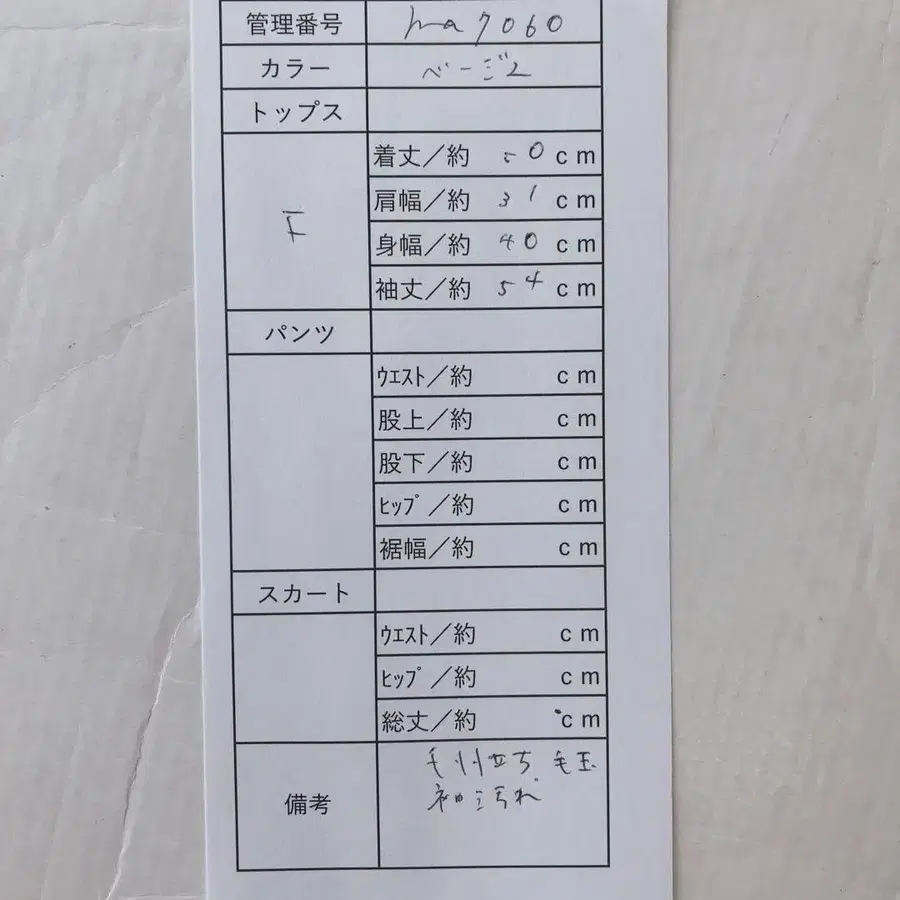 管理番号 ma7060
カラー ベージュ
トップス
F
着丈／約 50 cm
肩幅／約 31 cm
身幅／約 40 cm
袖丈／約 54 cm
パンツ
ｳｴｽﾄ／約 cm
股上／約 cm
股下／約 cm
ﾋｯﾌﾟ／約 cm
裾幅／約 cm
スカート
ｳｴｽﾄ／約 cm
ﾋｯﾌﾟ／約 cm
総丈／約 cm
備考
毛羽立ち 毛玉
袖に汚れ